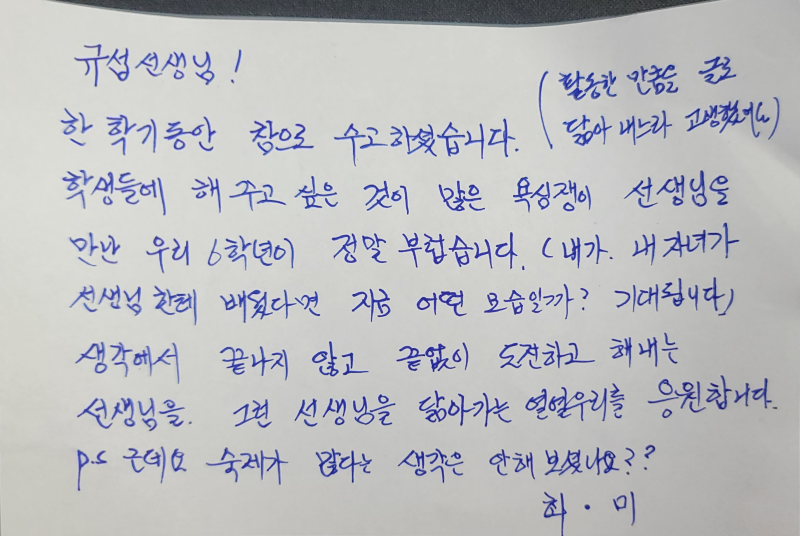 규섭선생님!
(활동한 만큼을 글로
닮아 내느라 고생했어(요)
한 학기동안 참으로 수고하셨습니다.
학생들에 해 주고 싶은 것이 많은 욕심쟁이 선생님을
만난 우리 6학년이 정말 부럽습니다. (내가. 내 자녀가
선생님한테 배웠다면 지금 어떤 모습일까? 기대됩니다)
생각에서 끝나지 않고 끝없이 도전하고 해내는
선생님을. 그런 선생님을 닮아가는 열열우리를 응원합니다.
p.s 근데요 숙제가 많다는 생각은 안해 보셨나요??
희·미